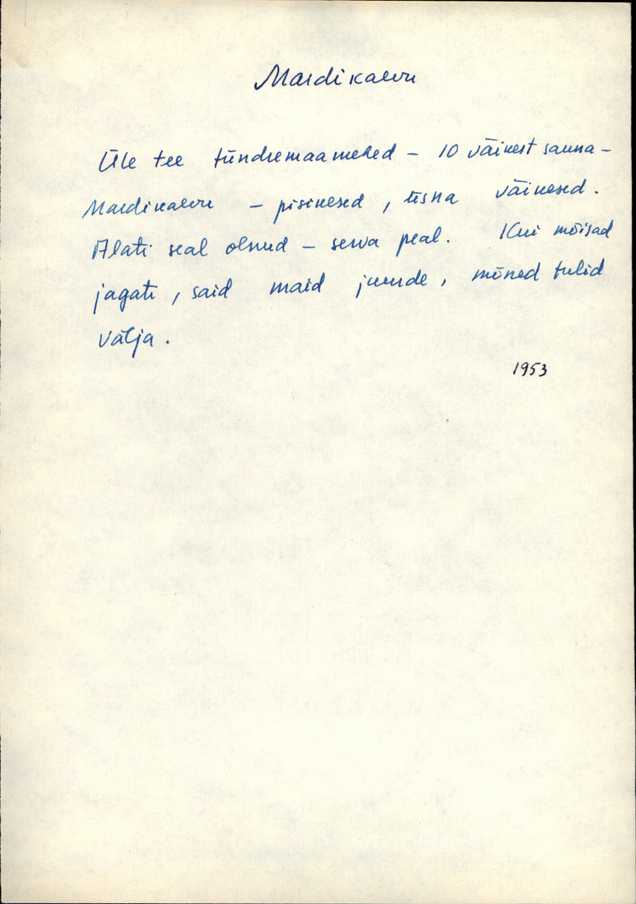 Mardikarvu
Üle tee tündremaamehed – 10 väikest sauna –
Mardikarvu – pisikesed, üsna väikesed.
Alati seal olnud – serva peal. Kui mõisad
jagati, said maid juurde, mõned tulid
välja.
1953